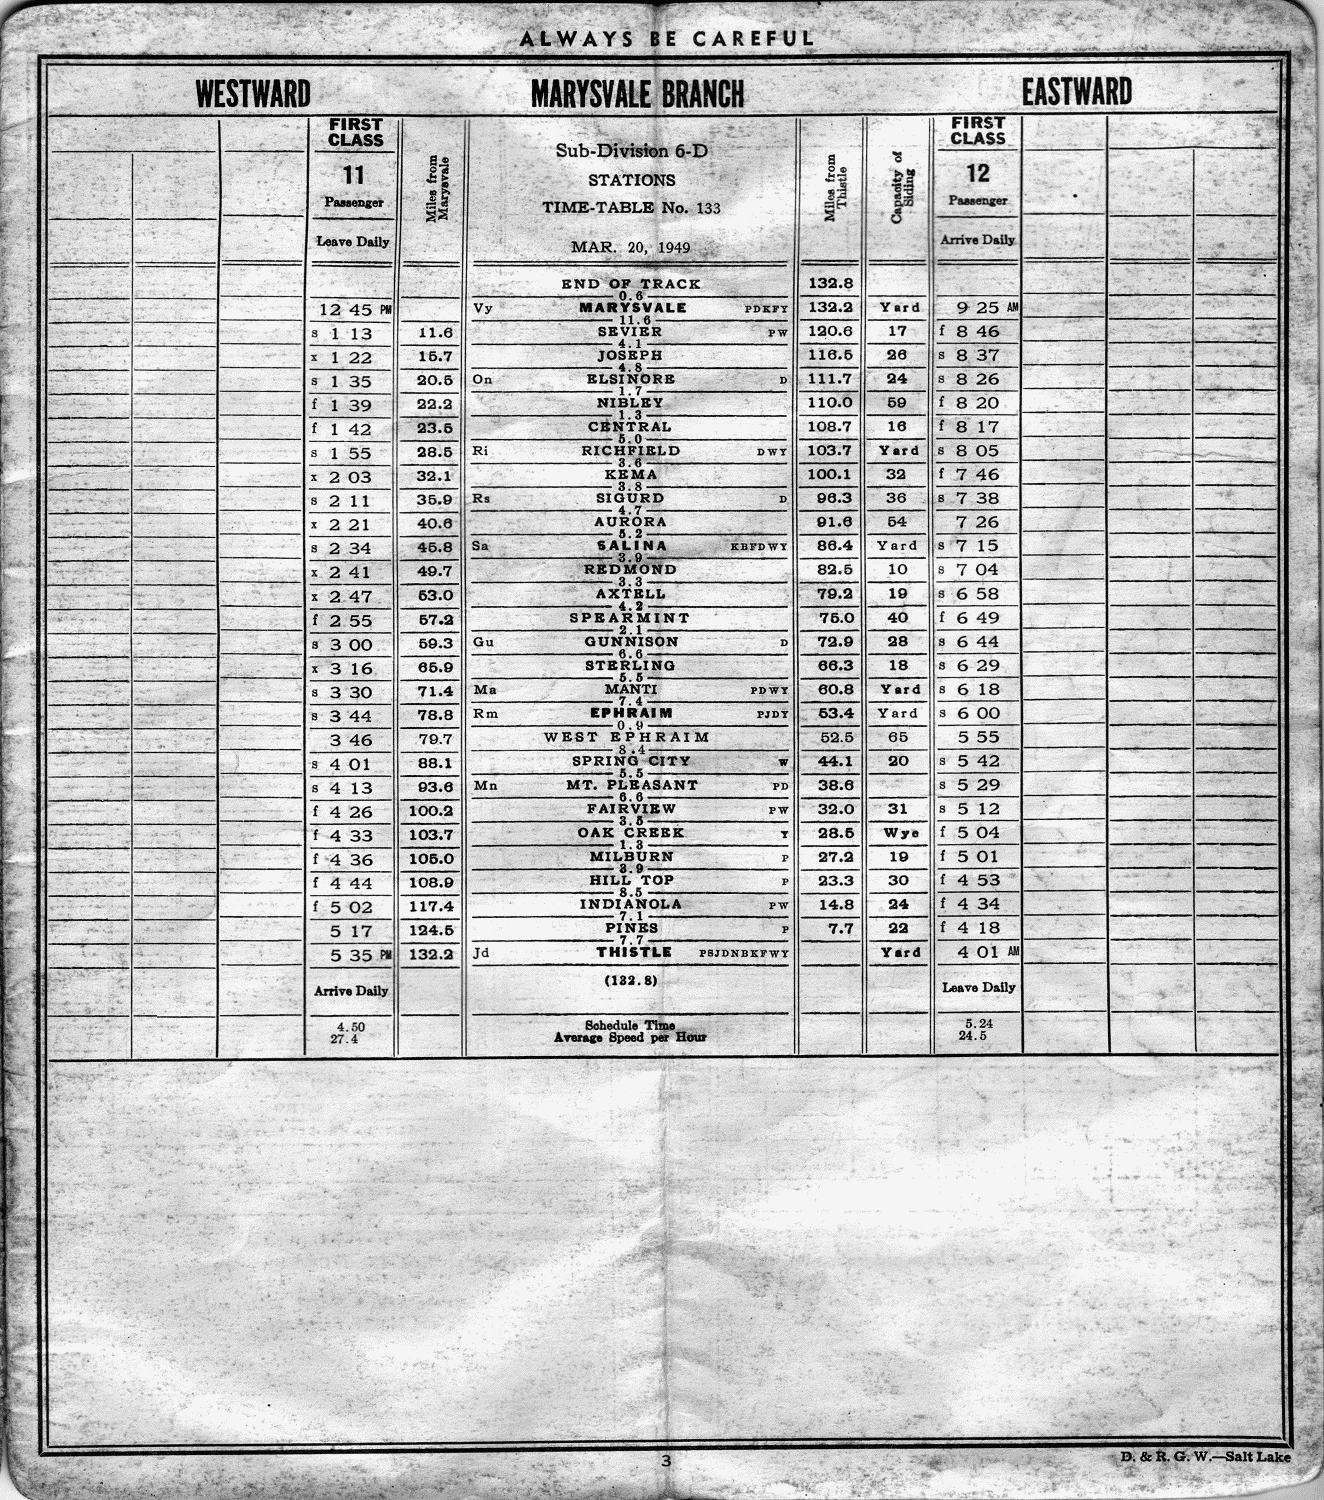 ALWAYS BE CAREFUL
WESTWARD MARYSVALE BRANCH EASTWARD
FIRST CLASS
11
Passenger
Leave Daily
Miles from Marysvale
Sub-Division 6-D
STATIONS
TIME-TABLE No. 133
MAR. 20, 1949
Miles from Thistle
Capacity of Siding
FIRST CLASS
12
Passenger
Arrive Daily
END OF TRACK 132.8
0.6
12 45 PM Vy MARYSVALE PDKFY 132.2 Yard 9 25 AM
11.6
s 1 13 11.6 SEVIER PW 120.6 17 f 8 46
4.1
x 1 22 15.7 JOSEPH 116.5 26 s 8 37
4.8
s 1 35 20.5 On ELSINORE D 111.7 24 s 8 26
1.7
f 1 39 22.2 NIBLEY 110.0 59 f 8 20
1.3
f 1 42 23.5 CENTRAL 108.7 16 f 8 17
5.0
s 1 55 28.5 Ri RICHFIELD DWY 103.7 Yard s 8 05
3.6
x 2 03 32.1 KEMA 100.1 32 f 7 46
3.8
s 2 11 35.9 Rs SIGURD D 96.3 36 s 7 38
4.7
x 2 21 40.6 AURORA 91.6 54 7 26
5.2
s 2 34 45.8 Sa SALINA KBFDWY 86.4 Yard s 7 15
3.9
x 2 41 49.7 REDMOND 82.5 10 s 7 04
3.3
x 2 47 53.0 AXTELL 79.2 19 s 6 58
4.2
f 2 55 57.2 SPEARMINT 75.0 40 f 6 49
2.1
s 3 00 59.3 Gu GUNNISON D 72.9 28 s 6 44
6.6
x 3 16 65.9 STERLING 66.3 18 s 6 29
5.5
s 3 30 71.4 Ma MANTI PDWY 60.8 Yard s 6 18
7.4
s 3 44 78.8 Rm EPHRAIM PJDY 53.4 Yard s 6 00
0.9
3 46 79.7 WEST EPHRAIM 52.5 65 5 55
8.4
s 4 01 88.1 SPRING CITY W 44.1 20 s 5 42
5.5
s 4 13 93.6 Mn MT. PLEASANT PD 38.6 s 5 29
6.6
f 4 26 100.2 FAIRVIEW PW 32.0 31 s 5 12
3.5
f 4 33 103.7 OAK CREEK Y 28.5 Wye f 5 04
1.3
f 4 36 105.0 MILBURN P 27.2 19 f 5 01
3.9
f 4 44 108.9 HILL TOP P 23.3 30 f 4 53
8.5
f 5 02 117.4 INDIANOLA PW 14.8 24 f 4 34
7.1
5 17 124.5 PINES P 7.7 22 f 4 18
7.7
5 35 PM 132.2 Jd THISTLE PSJDNBKFWY Yard 4 01 AM
Arrive Daily (132.8) Leave Daily
4.50 Schedule Time 5.24
27.4 Average Speed per Hour 24.5
3
D. & R. G. W.—Salt Lake